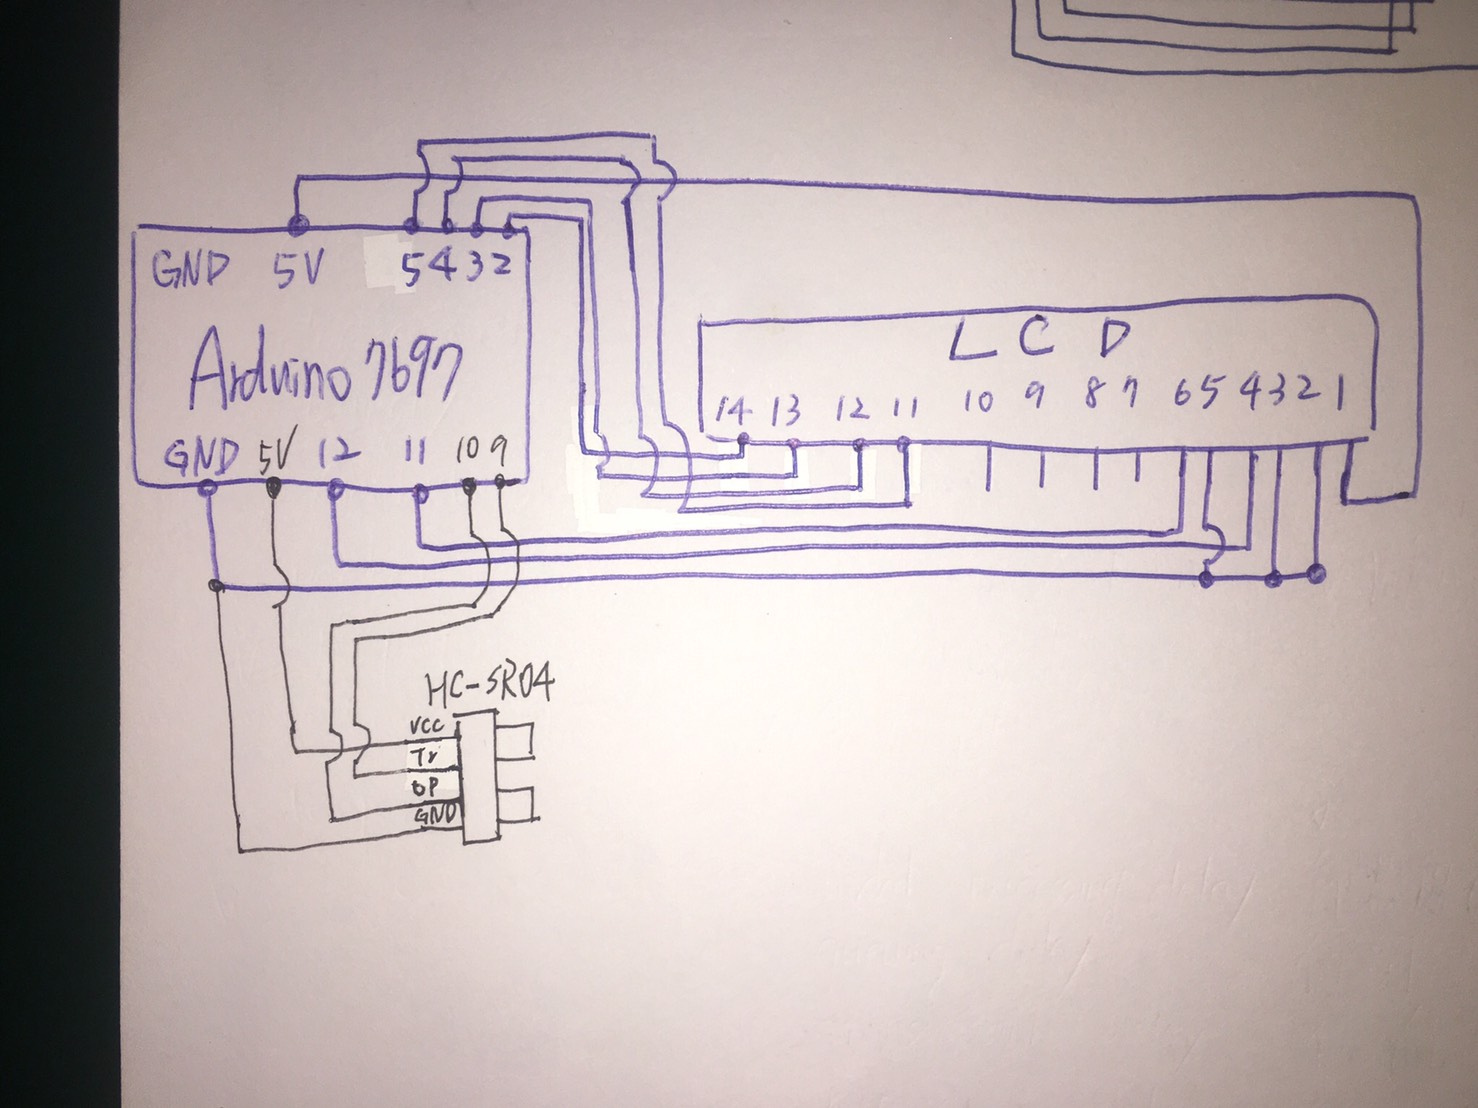 GND 5V 5 4 3 2
Arduino 7697
GND 5V 12 11 10 9
L C D
14 13 12 11 10 9 8 7 6 5 4 3 2 1
HC-SR04
VCC
Tr
GND